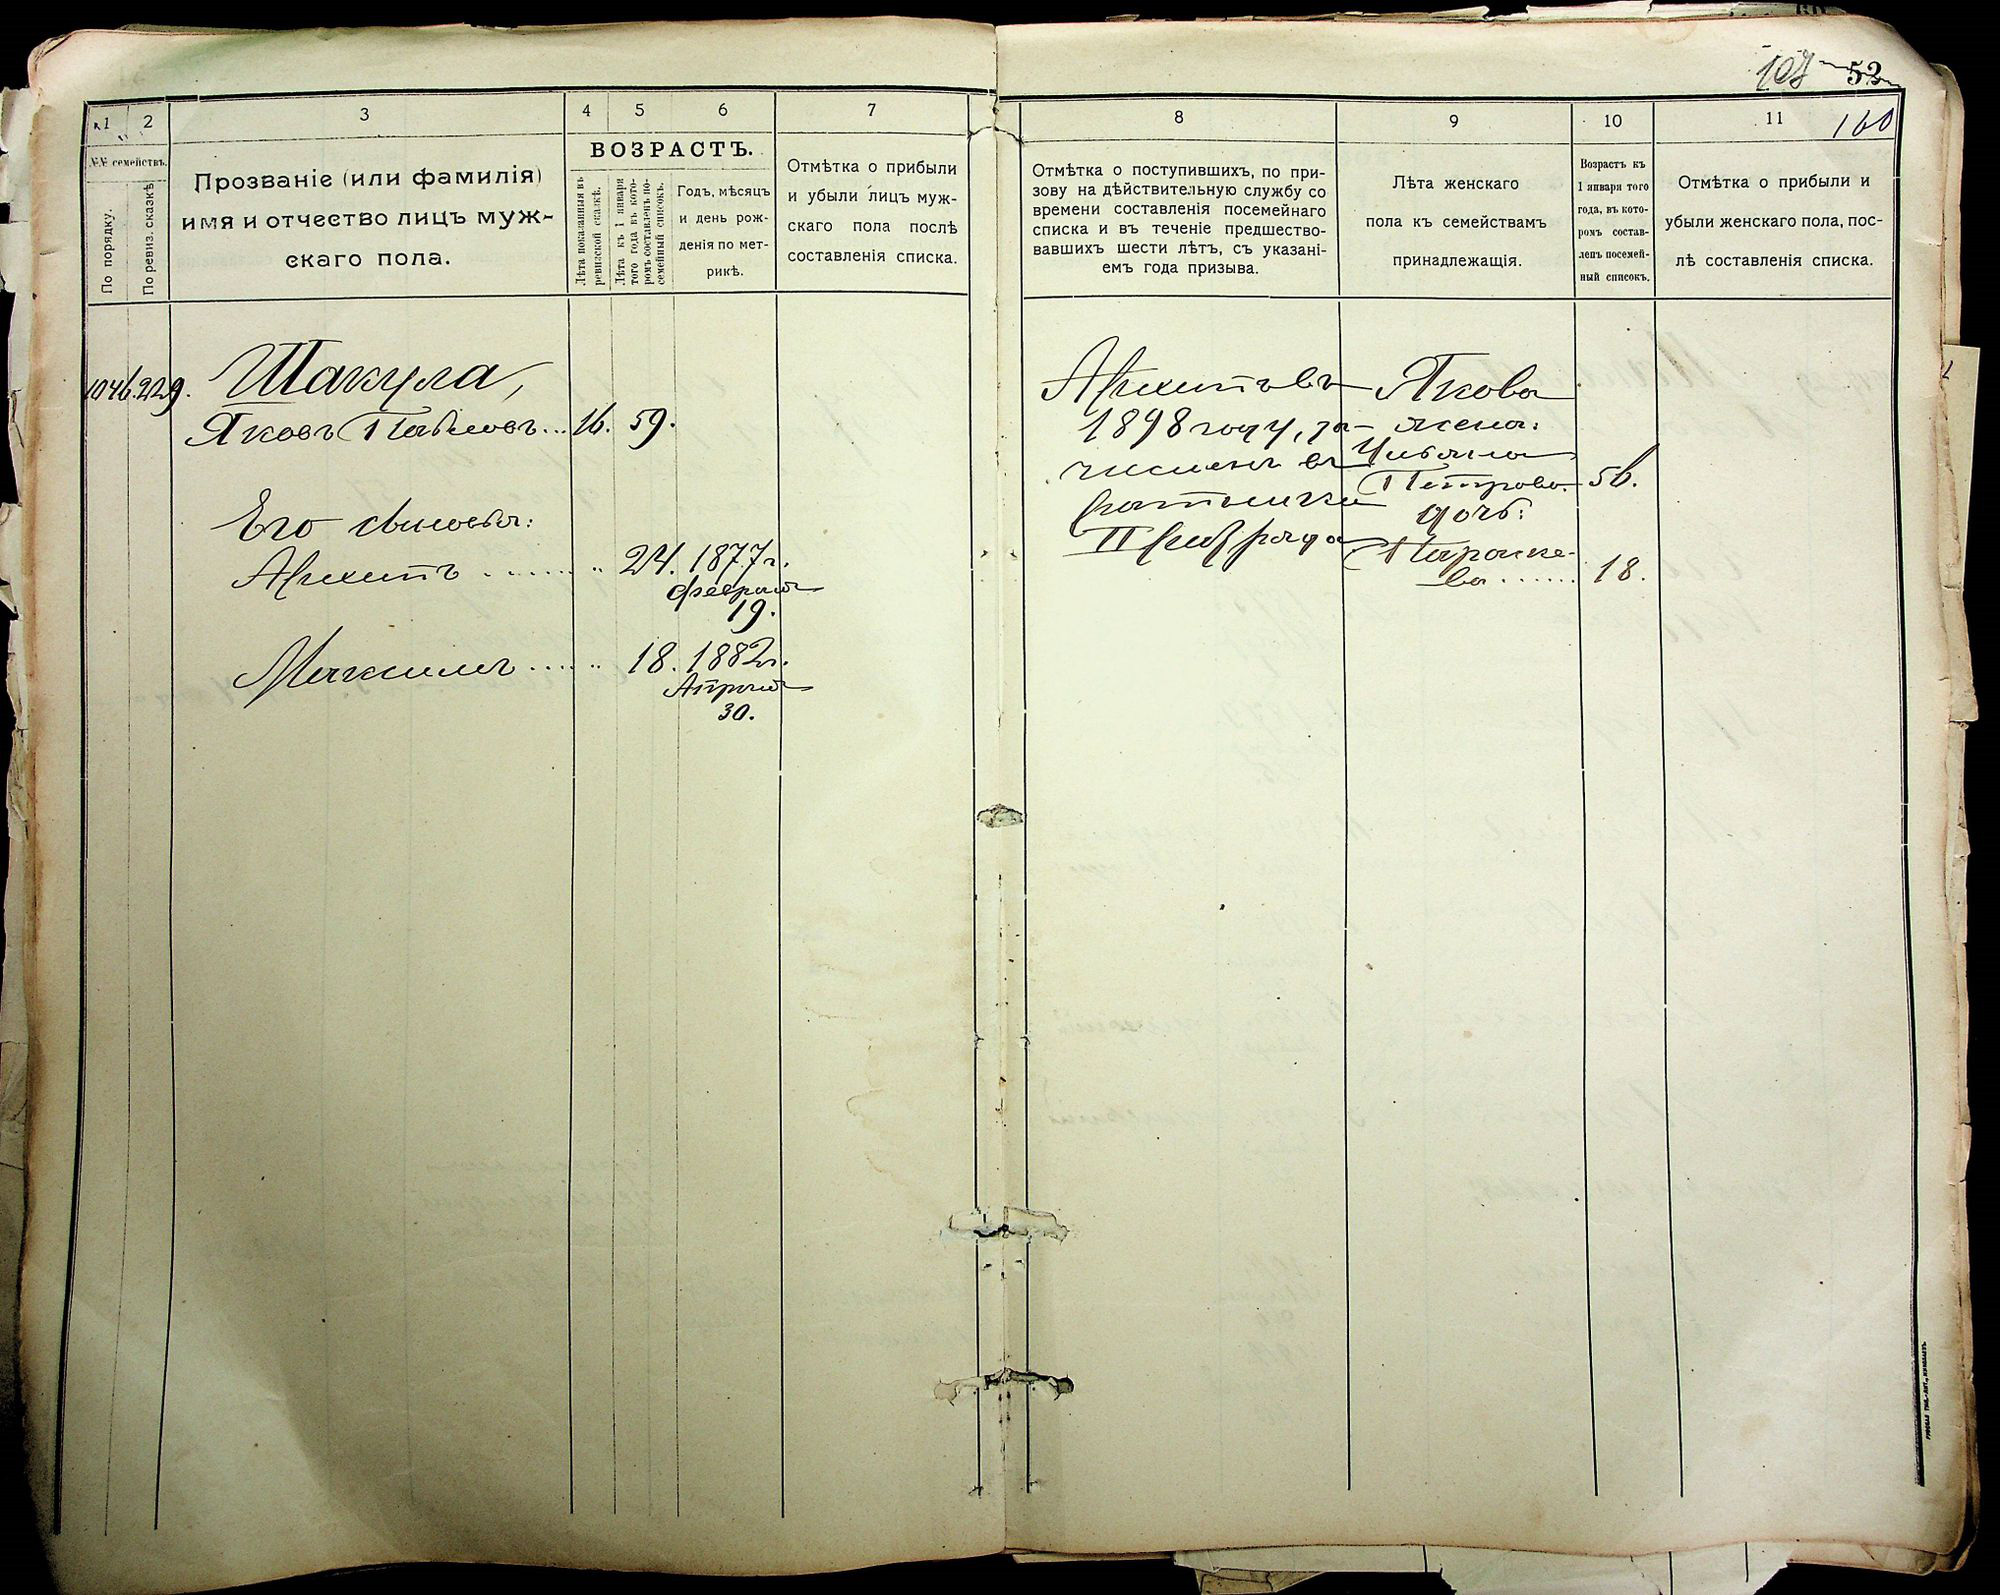 107 52
160
1 2 3 4 5 6 7
№№ семействъ.
По порядку.
По ревиз. сказкѣ
Прозваніе (или фамилія)
имя и отчество лицъ муж-
скаго пола.
ВОЗРАСТЪ.
Лѣта показанныя въ
ревизской сказкѣ.
Лѣта къ 1 января
того года въ кото-
ромъ составленъ по-
семейный списокъ.
Годъ, мѣсяцъ
и день рож-
денія по мет-
рикѣ.
Отмѣтка о прибыли
и убыли лицъ муж-
скаго пола послѣ
составленія списка.
1046. 229. Шакула,
Яковъ Павловъ... 16. 59.
Его сыновья:
Архипъ ....... „ 24. 1877г.
февраля
19.
Максимъ ..... „ 18. 1882г.
Апрѣля
30.
8 9 10 11
Отмѣтка о поступившихъ, по при-
зову на дѣйствительную службу со
времени составленія посемейнаго
списка и въ теченіе предшество-
вавшихъ шести лѣтъ, съ указані-
емъ года призыва.
Лѣта женскаго
пола къ семействамъ
принадлежащія.
Возрастъ къ
1 января того
года, въ кото-
ромъ состав-
ленъ посемей-
ный списокъ.
Отмѣтка о прибыли и
убыли женскаго пола, пос-
лѣ составленія списка.
Архипъ въ
1898 году, за-
численъ въ
ратники
II разряда
Якова
жена:
Ульяна
Петрова. 56.
дочь:
Параске-
ва ...... 18.